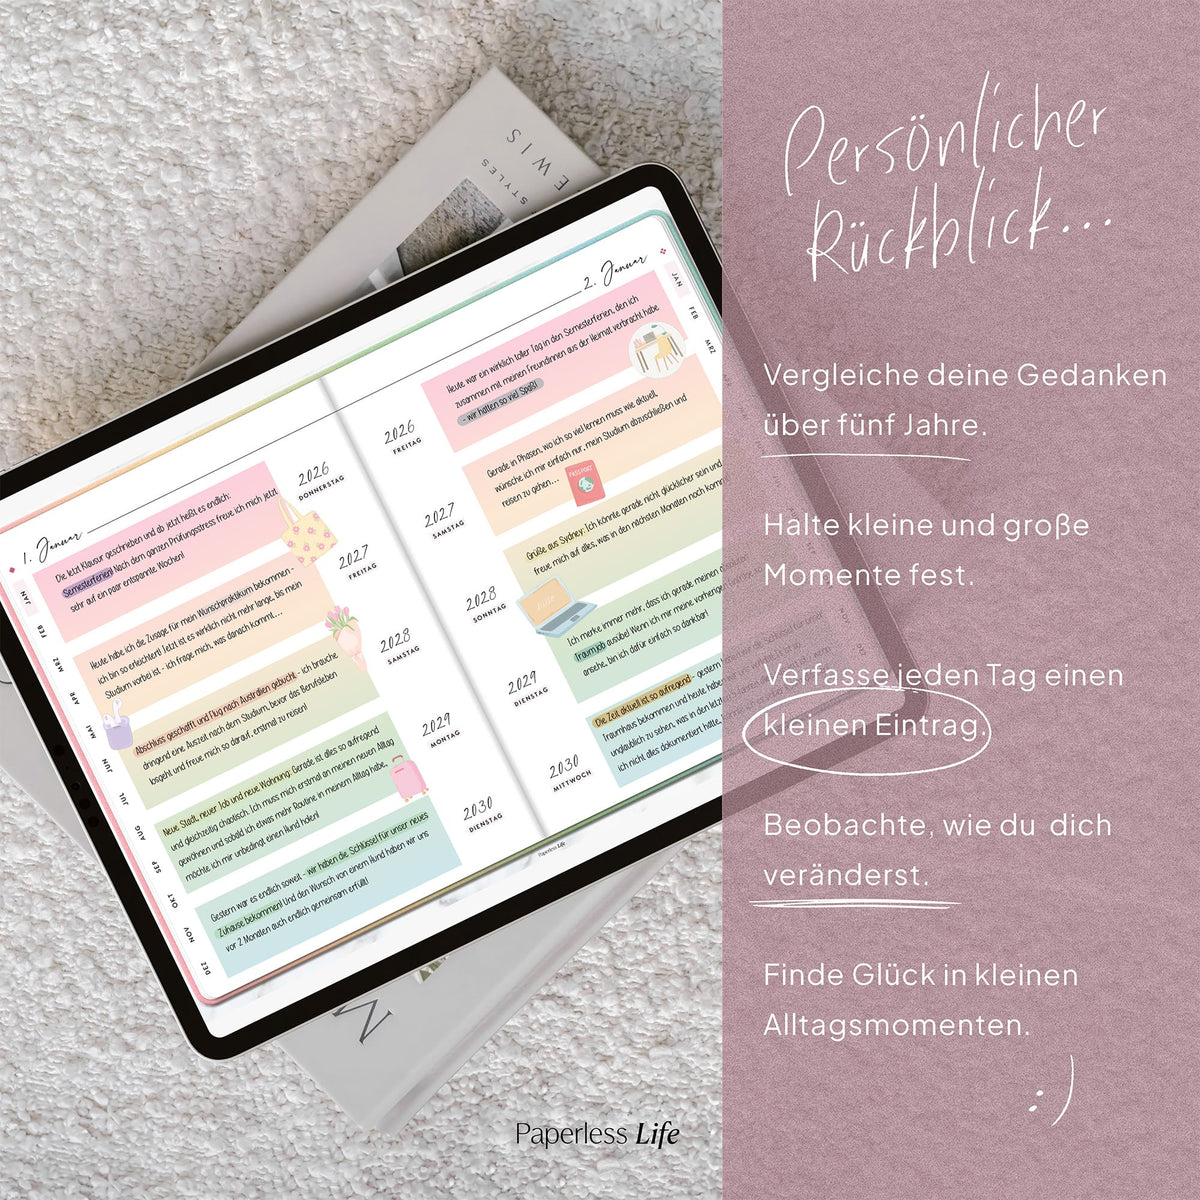 Persönlicher
Rückblick...
Vergleiche deine Gedanken
über fünf Jahre.
Halte kleine und große
Momente fest.
Verfasse jeden Tag einen
kleinen Eintrag.
Beobachte, wie du dich
veränderst.
Finde Glück in kleinen
Alltagsmomenten.
:)
Paperless Life
EWIS
STYLES
M
1. Januar
Die letzt Klausur geschrieben und ab jetzt heißt es endlich:
Semesterferien! Nach dem ganzen Prüfungsstress freue ich mich jetzt
sehr auf ein paar entspannte Wochen!
2026
DONNERSTAG
Heute habe ich die Zusage für mein Wunschpraktikum bekommen -
ich bin so erleichtert! Jetzt ist es wirklich nicht mehr lange, bis mein
Studium vorbei ist - ich frage mich, was danach kommt...
2027
FREITAG
Abschluss geschafft und Flug nach Australien gebucht - ich brauche
dringend eine Auszeit nach dem Studium, bevor das Berufsleben
losgeht und freue mich so darauf, erstmal zu reisen!
2028
SAMSTAG
Neue Stadt, neuer Job und neue Wohnung: Gerade ist alles so aufregend
und gleichzeitig chaotisch. Ich muss mich erstmal an meinen neuen Alltag
gewöhnen und sobald ich etwas mehr Routine in meinem Alltag habe,
möchte ich mir unbedingt einen Hund holen!
2029
MONTAG
Gestern war es endlich soweit - wir haben die Schlüssel für unser neues
Zuhause bekommen! Und den Wunsch von einem Hund haben wir uns
vor 2 Monaten auch endlich gemeinsam erfüllt!
2030
DIENSTAG
JAN
FEB
MRZ
APR
MAI
JUN
JUL
AUG
SEP
OKT
NOV
DEZ
2. Januar
2026
FREITAG
Heute war ein wirklich toller Tag in den Semesterferien, den ich
zusammen mit meinen Freundinnen aus der Heimat verbracht habe
- wir hatten so viel Spaß!
2027
SAMSTAG
Gerade in Phasen, wo ich so viel lernen muss wie aktuell,
wünsche ich mir einfach nur, mein Studium abzuschließen und
reisen zu gehen...
PASSPORT
2028
SONNTAG
Grüße aus Sydney: Ich könnte gerade nicht glücklicher sein und
freue mich auf alles, was in den nächsten Monaten noch komm
2029
DIENSTAG
Ich merke immer mehr, dass ich gerade meinen
Traumjob ausübe! Wenn ich mir meine vorherige
ansehe, bin ich dafür einfach so dankbar!
2030
MITTWOCH
Die Zeit ist aktuell so aufregend - gestern
Traumhaus bekommen und heute habe
unglaublich zu sehen, was in den letz
ich nicht alles dokumentiert hätte,
JAN
FEB
MRZ
NOV
DEZ
Paperless Life